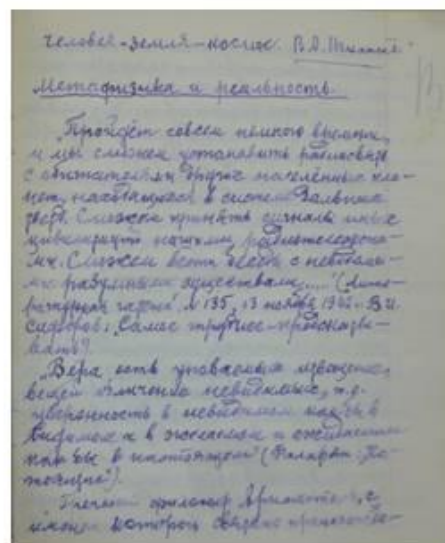 Человек–земля–космос. В.О.
Метафизика и реальность.
„Пройдёт совсем немного времени,
и мы сможем установить радиосвязь
с обитателями других населённых пла-
нет, находящихся в системе дальних
звёзд. Сможем принять сигналы иных
цивилизаций нашими радиотелескопа-
ми. Сможем вести беседы с неведомы-
ми разумными существами...." (Лите-
ратурная газета, N 135, 13 ноября В.И.
Сидоров: „Самое трудное – предсказы-
вать").
„Вера есть уповаемых извещение,
вещей обличение невидимых, т.е.
уверенность в невидимом как бы в
видимом и в желаемом и ожидаемом
как бы в настоящем" (Филарет.
).
философ с
именем которого связано